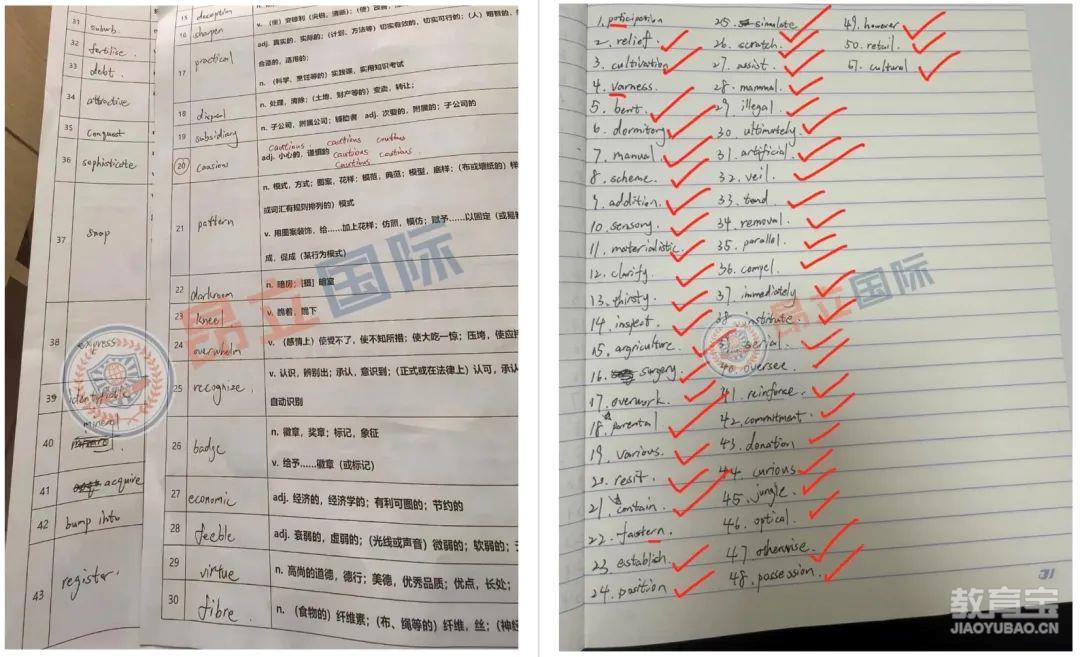 31 suburb.
32 fertilise.
33 debt.
34 attractive
35 Conquest
36 sophisticate
37 snap
38 express
39 identifiable
40 mineral
41 acquire
42 bump into
43 register.
15 deception
16 sharpen
17 practical
adj. 真实的、实际的;(计划、方法等)切实有效的,切实可行的;(人)
合适的,适用的;
n. (科学、烹饪等的)实践课,实用知识考试
18 disposal
n. 处理,清除;(土地、财产等的)变卖,转让;
19 subsidiary
n. 子公司,附属公司;辅助者 adj. 次要的,附属的;子公司的
cautious cautious cautious
20 causious
adj. 小心的,谨慎的 cautious cautious.
cautious
21 pattern
n. 模式,方式;图案,花样;模范,典范;模型,底样;(布或墙纸的)样
或词汇有规则排列的)模式
v. 用图案装饰,给……加上花样;仿照,模仿;赋予……以固定(或易
成,促成(某行为模式)
22 darkroom
n. 暗房;[摄] 暗室
23 kneel
v. 跪着,跪下
24 overwhelm
v. (感情上)使受不了,使不知所措;使大吃一惊;压垮,使应
25 recognize.
v. 认识,辨别出;承认,意识到;(正式或在法律上)认可,承认
自动识别
26 badge
n. 徽章,奖章;标记,象征
v. 给予……徽章(或标记)
27 economic
adj. 经济的,经济学的;有利可图的;节约的
28 feeble
adj. 衰弱的,虚弱的;(光线或声音)微弱的;软弱的;
29 virtue
n. 高尚的道德,德行;美德,优秀品质;优点,长处;
30 fibre
n. (食物的)纤维素;(布、绳等的)纤维,丝;(神经
昂立国际
1. participation
2. relief.
3. cultivation
4. varness.
5. berit
6. dormitory
7. manual
8. scheme.
9. addition.
10. sensory.
11. materialistic.
12. clarify.
13. thirsty.
14. inspect.
15. argriculture.
16. surgery.
17. overwork.
18. parental
19. Various.
20. resit.
21. contain.
22. faustern.
23. establish.
24. position
25. simulate
26. scratch.
27. assist.
28. mammal.
29. illegal.
30. ultimately.
31. artificial.
32. veil.
33. tend
34. removal.
35. parallel.
36. compel.
37. immediately
38. institute.
39. serial.
40. oversee.
41. reinforse.
42. commitment.
43. donation
44. curious.
45. jungle.
46. optical.
47. otherwise.
48. possession.
49. however
50. retail.
51. cultural
昂立国际
31
教育宝
JIAOYUBAO.CN